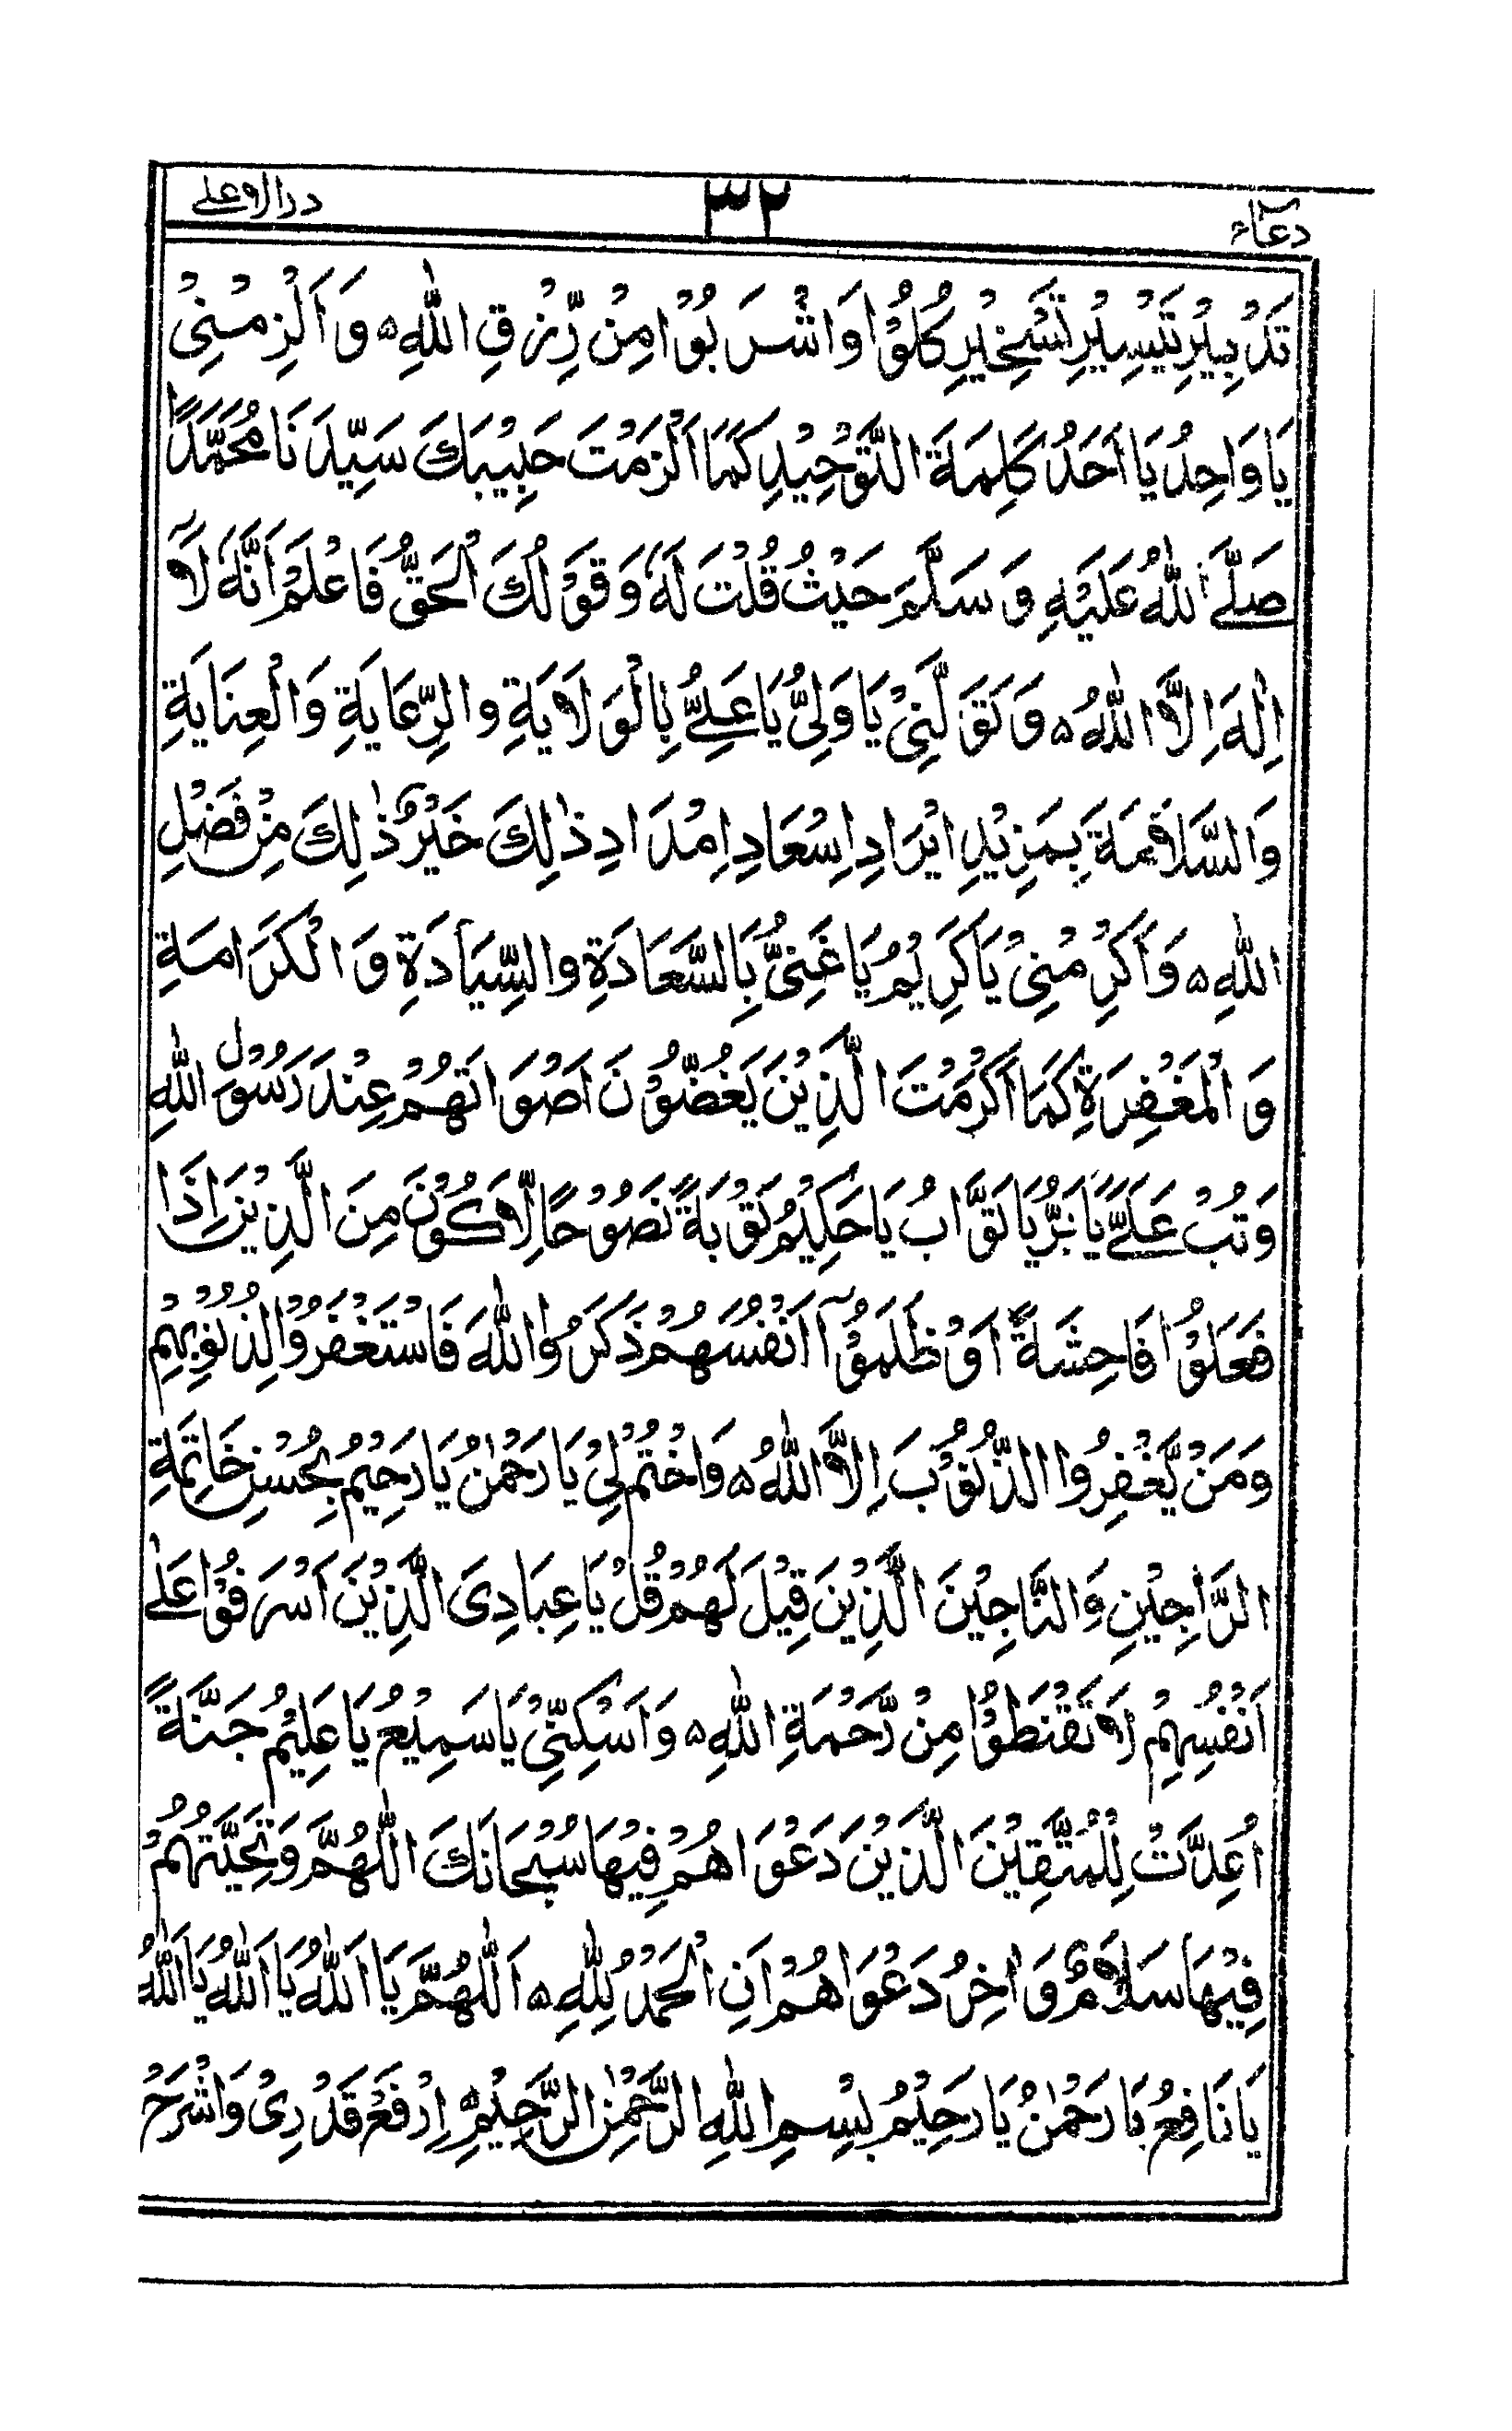 دعاء ۳۲ درالاعلے
تَدْبِيْرِ تَيْسِيْرِ تَسْخِيْرِ كُلُوْا وَاشْرَبُوْا مِنْ رِّزْقِ اللّٰهِ ہ وَاَلْزِمْنِیْ
يَا وَاحِدُ يَا اَحَدُ كَلِمَةَ التَّوْحِيْدِ كَمَا اَلْزَمْتَ حَبِيْبَكَ سَيِّدَنَا مُحَمَّدًا
صَلَّے اللّٰهُ عَلَيْهِ وَ سَلَّمَ حَيْثُ قُلْتَ لَهٗ وَقَوْلُكَ الْحَقُّ فَاعْلَمْ اَنَّهٗ لَآ
اِلٰهَ اِلَّا اللّٰهُ ہ وَتَوَلَّنِیْ يَا وَلِیُّ يَا عَلِیُّ بِالْوَلَايَةِ وَالرِّعَايَةِ وَالْعِنَايَةِ
وَالسَّلَامَةَ بِمَزِيْدِ اِيْرَادِ اِسْعَادِ اِمْدَادِ ذٰلِكَ خَيْرٌ ذٰلِكَ مِنْ فَضْلِ
اللّٰهِ ہ وَاَكْرِمْنِیْ يَا كَرِيْمُ يَا غَنِیُّ بِالسَّعَادَةِ وَالسِّيَادَةِ وَالْكَرَامَةِ
وَالْمَغْفِرَةِ كَمَا اَكْرَمْتَ الَّذِيْنَ يَغُضُّوْنَ اَصْوَاتَهُمْ عِنْدَ رَسُوْلِ اللّٰهِ
وَتُبْ عَلَےَّ يَا بَرُّ يَا تَوَّابُ يَا حَكِيْمُ تَوْبَةً نَصُوْحًا لِّاَكُوْنَ مِنَ الَّذِيْنَ اِذَا
فَعَلُوْا فَاحِشَةً اَوْ ظَلَمُوْآ اَنْفُسَهُمْ ذَكَرُوا اللّٰهَ فَاسْتَغْفَرُوْا لِذُنُوْبِهِمْ
وَمَنْ يَّغْفِرُوا الذُّنُوْبَ اِلَّا اللّٰهُ ہ وَاخْتِمْ لِیْ يَا رَحْمٰنُ يَا رَحِيْمُ بِحُسْنِ خَاتِمَةِ
الرَّاجِيْنِ وَالنَّاجِيْنَ الَّذِيْنَ قِيْلَ لَهُمْ قُلْ يَا عِبَادِیَ الَّذِيْنَ اَسْرَفُوْا عَلٰے
اَنْفُسِهِمْ لَا تَقْنَطُوْا مِنْ رَّحْمَةِ اللّٰهِ ہ وَاَسْكِنِّیْ يَا سَمِيْعُ يَا عَلِيْمُ جَنَّةً
اُعِدَّتْ لِلْمُتَّقِيْنَ الَّذِيْنَ دَعْوَاهُمْ فِيْهَا سُبْحَانَكَ اللّٰهُمَّ وَتَحِيَّتُهُمْ
فِيْهَا سَلَامٌ وَاٰخِرُ دَعْوَاهُمْ اَنِ الْحَمْدُ لِلّٰهِ ہ اَللّٰهُمَّ يَا اَللّٰهُ يَا اَللّٰهُ يَا اَللّٰهُ
يَا نَافِعُ يَا رَحْمٰنُ يَا رَحِيْمُ بِسْمِ اللّٰهِ الرَّحْمٰنِ الرَّحِيْمِ اِرْفَعْ قَدْرِیْ وَاشْرَحْ